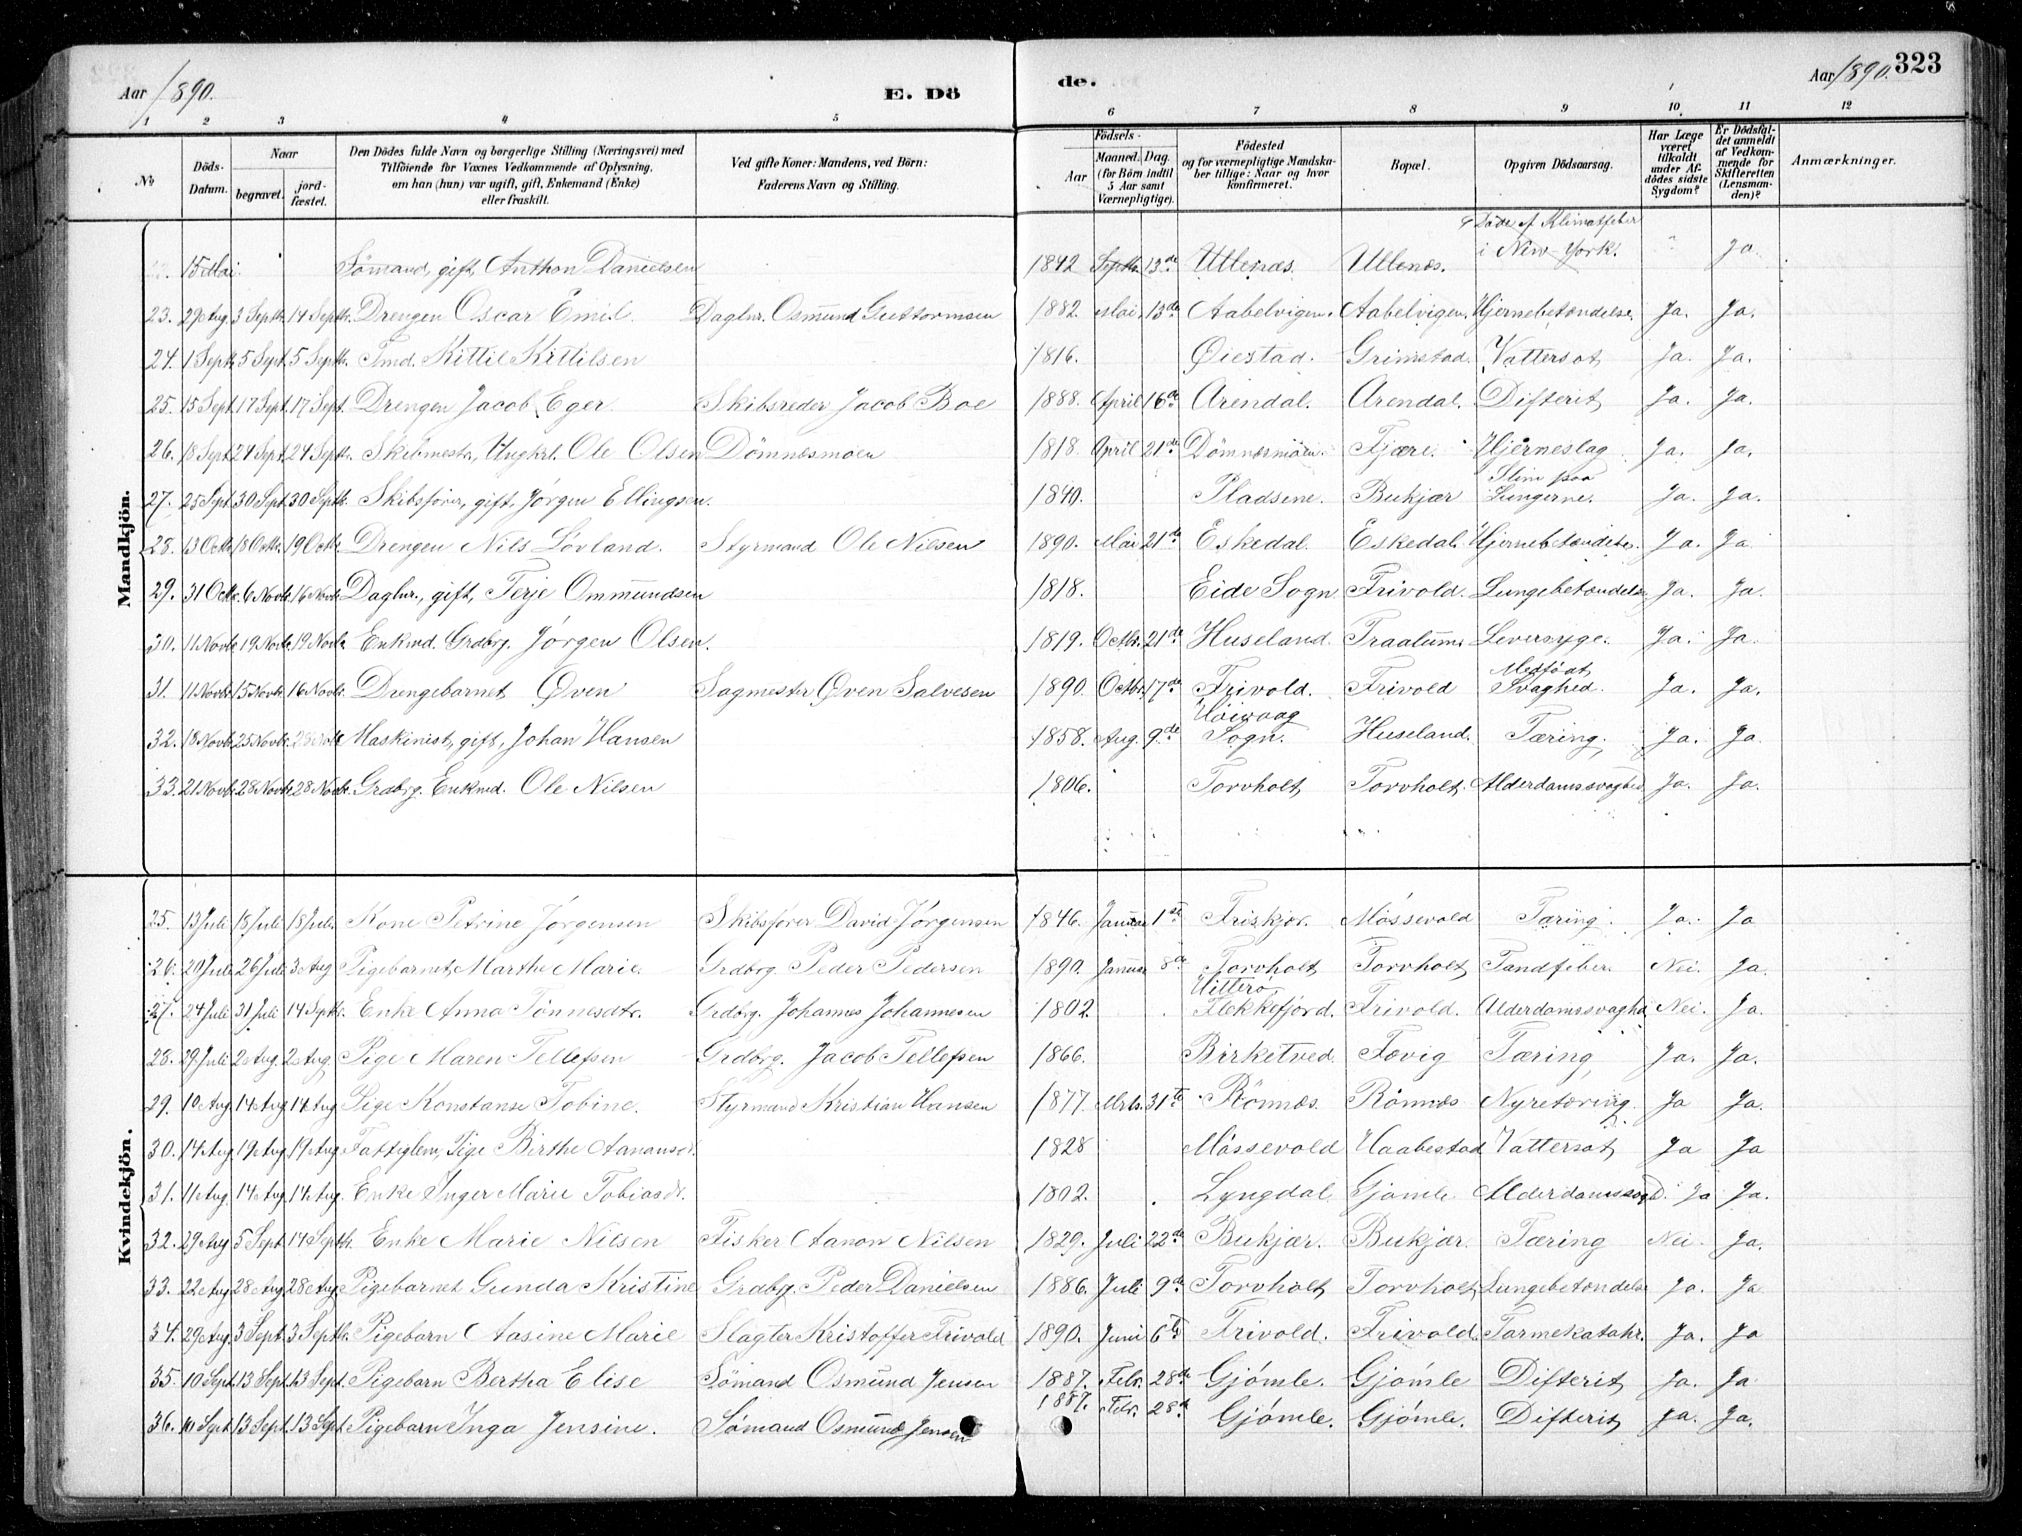 Aar 1890. E. Dö de. Aar 1890. 323
1 2 3 4 5 6 7 8 9 10 11 12
No
Döds-Datum.
Naar
begravet.
jordfæstet.
Den Dödes fulde Navn og borgerlige Stilling (Næringsvei) med
Tilföiende for Voxnes Vedkommende af Oplysning,
om han (hun) var ugift, gift, Enkemand (Enke)
eller fraskilt.
Ved gifte Koner: Mandens, ved Börn:
Faderens Navn og Stilling.
Födsels-
Aar
Maaned. Dag.
(for Börn indtil
5 Aar samt
Værnepligtige).
Födested
og for værnepligtige Mandska-
ber tillige: Naar og hvor
konfirmeret.
Bopæl.
Opgiven Dödsaarsag.
Har Læge
været
tilkaldt
under Af-
dödes sidste
Sygdom?
Er Dödsfal-
det anmeldt
af Vedkom-
mende for
Skifteretten
(Lensman-
den)?
Anmærkninger.
Mandkjön.
Döde af Klimatfeber
15 Mai Sømand, gift, Anthon Danielsen 1842 Septbr. 13de Ullenæs. Ullenæs. i New-York. " Ja.
23. 29 Aug. 3 Septb. 14 Septb. Drengen Oscar Emil Daglnr. Osmund Guttormsen 1882. Mai 13de Aabelvigen. Aabelvigen. Hjernebetændelse. Ja. Ja.
24. 1 Septb. 5 Sept. 5 Septb. Tmd. Kittil Kittilsen 1816. Øiestad. Grimstad. Vattersot Ja. Ja.
25. 15 Sept. 17 Sept. 17 Sept. Drengen Jacob Eger Skibsreder Jacob Boe 1888. April 16de Arendal. Arendal. Difterit Ja. Ja.
26. 18 Sept. 24 Sept. 24 Septb. Skibmestr, Ungkrl. Ole Olsen Dömnesmoen 1818. April 21de Dömnesmöen. Fjære. Hjerneslag Ja. Ja.
Slim paa
27. 25 Sept. 30 Sept. 30 Septb. Skibsfører, gift, Jørgen Ellingsen. 1840. Pladsene. Bukjær Lungerne. Ja. Ja.
28. 13 Octb. 18 Octb. 19 Octb. Drengen Nils Lövland. Styrmand Ole Nilsen 1890. Mai 21de Eskedal. Eskedal. Hjernebetændelse. Ja. Ja
29. 31 Octb. 6 Novb. 16 Novb. Daglnr., gift, Terje Ommundsen 1818. Eide Sogn Frivold. Lungebetændelse Ja. Ja.
30. 11 Novb. 19 Novb. 19 Novb. Enkmd. Grdbrg. Jørgen Olsen. 1819. Octbr. 21de Huseland. Traalum. Leversyge. Ja. Ja.
Medfødt
31. 11 Novb. 15 Novb. 16 Novb. Drengebarnet Øven Sagmester Øven Salvesen 1890. Octbr. 17de Frivold. Frivold Svaghed. Ja. Ja.
Høivaag
32. 18 Novb. 25 Novb. 25 Novb. Maskinist, gift, Johan Hansen 1858. Aug. 9de Sogn. Huseland. Tæring, Ja. Ja.
33. 21 Novb. 28 Novb. 28 Novb. Grdbrg. Enkmd. Ole Nilsen 1806. Torvholt Torvholt. Alderdomssvaghed Ja. Ja.
Kvindekjön.
25. 13 Juli 18 Juli 18 Juli. Kone Petrine Jørgensen Skibsfører David Jørgensen 1846. Januar 1ste Friskjær. Møssevold Tæring. Ja. Ja
26. 20 Juli 26 Juli 3 Aug Pigebarnet Marthe Marie. Grdbrg. Peder Pedersen 1890. Januar 8de Torvholt Torvholt Tandfeber. Nei. Ja.
Hitterö
27. 24 Juli 31 Juli 14 Septb. Enke Anna Tønnesdtr. Grdbrg. Johannes Johannesen 1802 Flekkefjord. Frivold. Alderdomssvaghd Nei. Ja.
28. 29 Juli 2 Aug. 2 Aug. Pige Maren Tellefsen Grdbrg. Jacob Tellefsen 1866. Birketved. Fævig Tæring, Ja. Ja.
29. 10 Aug. 14 Aug. 14 Aug Pige Konstanse Tobine. Styrmand Kristian Hansen 1877. Mrts. 31te Rönnæs. Rönnæs Nyretæring. Ja Ja.
30. 14 Aug. 19 Aug. 19 Aug Fattiglem, Pige Birthe Aanonsd. 1828 Møssevold Haabestad Vattersot Ja Ja
31. 11 Aug. 14 Aug. 14 Aug. Enke Inger Marie Tobiasdr. 1802. Lyngdal Gjømle Alderdomssvgd. Ja Ja.
32. 29 Aug 5 Sept. 14 Septb. Enke Marie Nilsen Fisker Aanon Nilsen 1829. Juli 22de Bukjær. Bukjær. Tæring Nei. Ja.
33. 22 Aug 28 Aug 28 Aug. Pigebarnet Gunda Kristine Grdbrg. Peder Danielsen 1886. Juli 9de Torvholt Torvholt Lungebetændelse Ja. Ja
34. 29 Aug. 3 Sept. 3 Septb. Pigebarn Aasine Marie Slagter Kristoffer Frivold 1890. Juni 6te Frivold. Frivold. Tarmekatahr. Ja. Ja
35. 10 Sept. 13 Sept. 13 Sept. Pigebarn Bertha Elise Sømand Osmund Jensen 1887. Febr. 28de Gjømle. Gjømle Difterit Ja. Ja.
36. 10 Sept 13 Sept. 13 Sept Pigebarn Inga Jensine. Sømand Osmund Jensen 1887. Febr. 28de Gjømle. Gjømle. Difterit Ja. Ja.